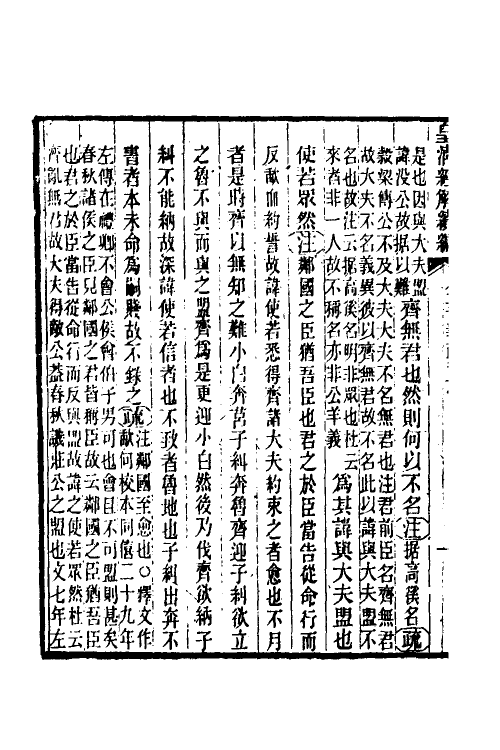 皇清經解續編
是也因與大夫盟
諱沒公故据以難
齊無君也然則何以不名注据高傒名疏
穀梁傳公不及大夫大夫不名無君也注君前臣名齊無君
故大夫不名義異彼以齊無君故不名此以諱與大夫盟不
名也故注云据高傒名明非眾也杜云
來者非一人故不稱名亦非公羊義
為其諱與大夫盟也
使若眾然注鄰國之臣猶吾臣也君之於臣當告從命行而
反歃血約誓故諱使若悉得齊諸大夫約束之者愈也不月
者是時齊以無知之難小白奔莒子糾奔魯齊迎子糾欲立
之魯不與而與之盟齊為是更迎小白然後乃伐齊欲納子
糾不能納故深諱使若信者也不致者魯地也子糾出奔不
書者本未命為嗣賤故不錄之疏
注鄰國至愈也○釋文作
歃何校本同僖二十九年
左傳在禮卿不會公侯會伯子男可也會且不可盟則甚矣
春秋諸侯之臣見鄰國之君皆稱臣故云鄰國之臣猶吾臣
也君之於臣當告從命行而反與盟故諱之使若眾然杜云
齊亂無君故大夫得敵公蓋春秋譏莊公之盟也文七年左